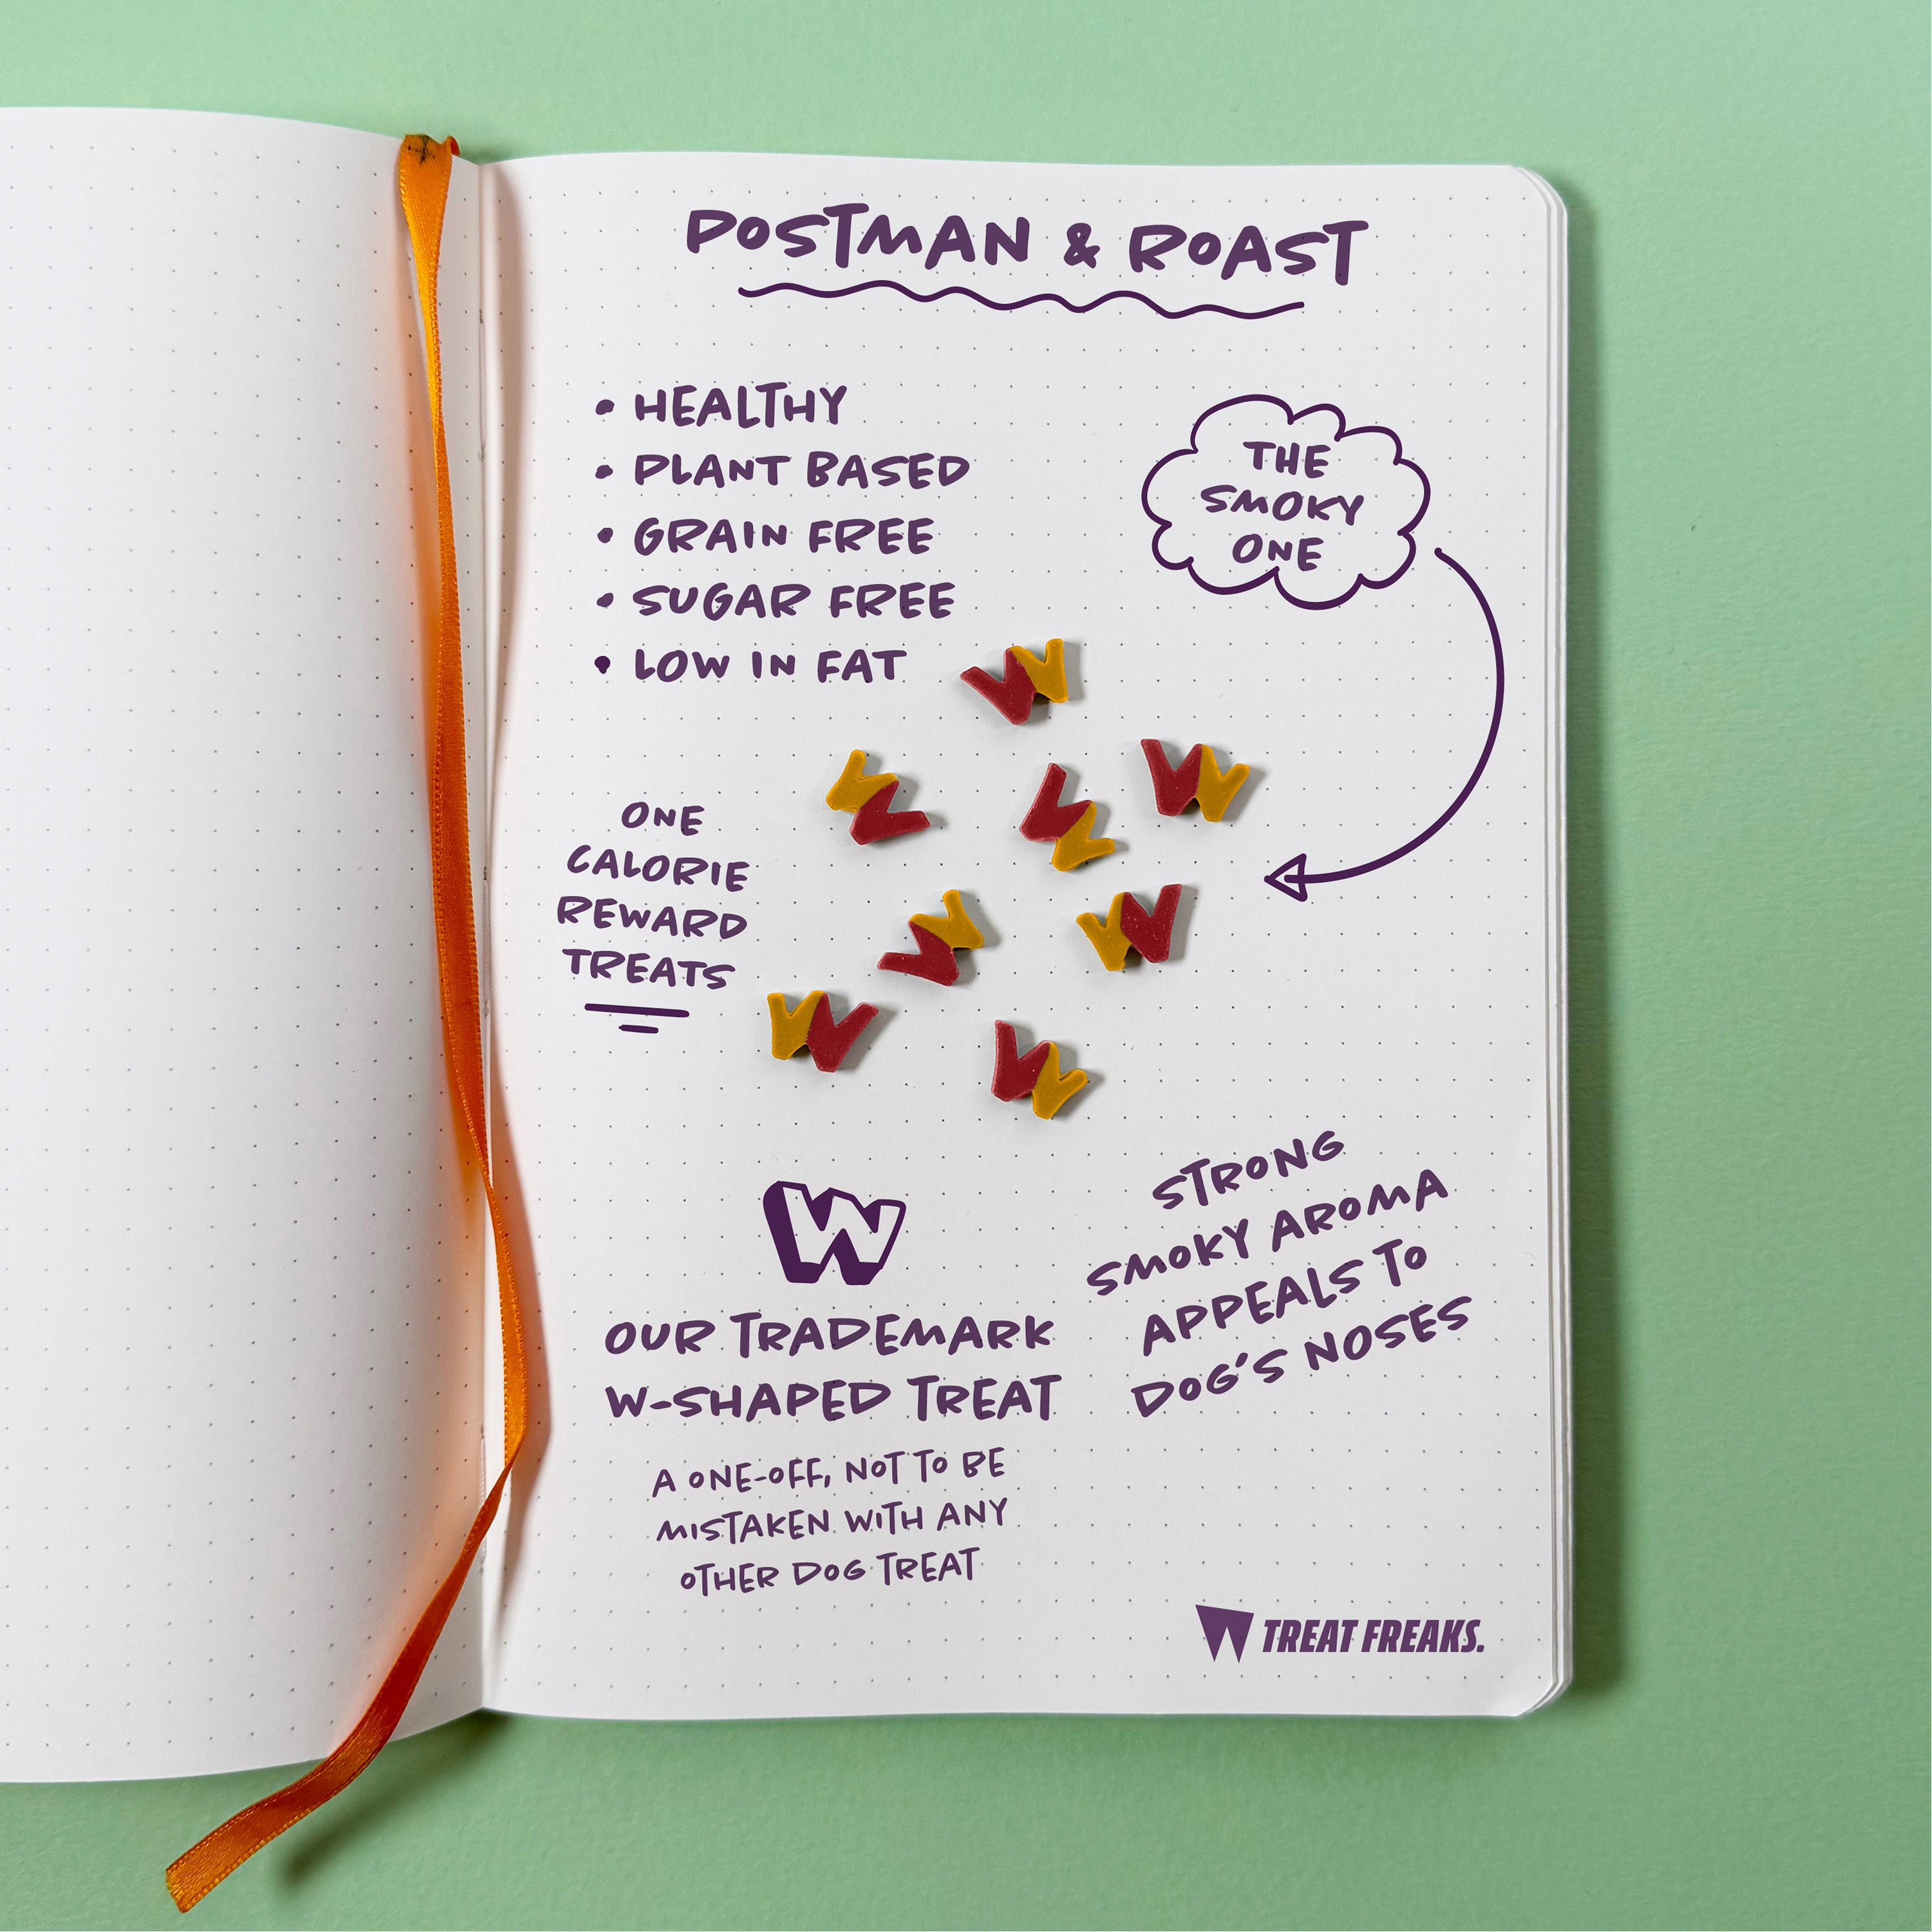 POSTMAN & ROAST
• HEALTHY
• PLANT BASED
• GRAIN FREE
• SUGAR FREE
• LOW IN FAT
THE
SMOKY
ONE
ONE
CALORIE
REWARD
TREATS
W
OUR TRADEMARK
W-SHAPED TREAT
A ONE-OFF, NOT TO BE
MISTAKEN WITH ANY
OTHER DOG TREAT
STRONG
SMOKY AROMA
APPEALS TO
DOG'S NOSES
W TREAT FREAKS.